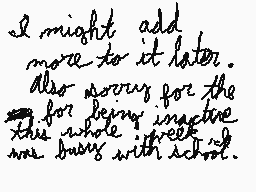 I might add
more to it later.
Also sorry for the
for being inactive
this whole week. I
was busy with school.